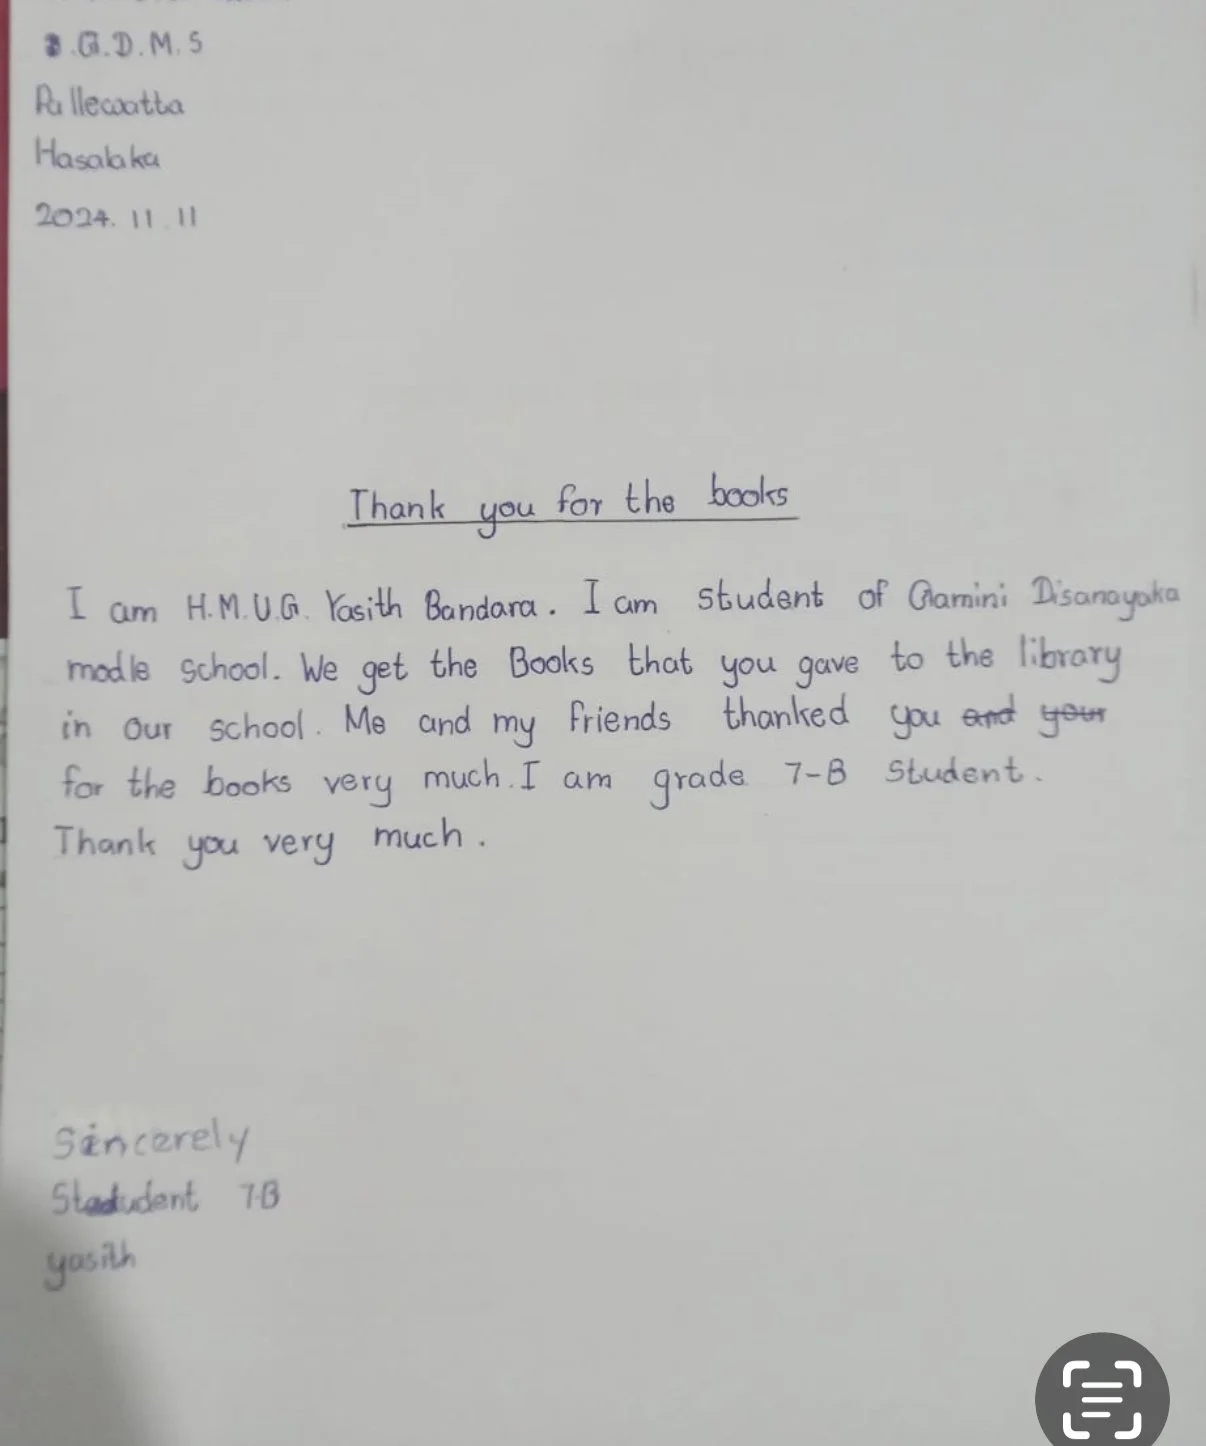 G.D.M.S
Pallewatta
Hasalaka
2024.11.11
Thank you for the books
I am H.M.U.G. Yasith Bandara. I am student of Gamini Disanayaka
modle school. We get the Books that you gave to the library
in our school. Me and my friends thanked you and your
for the books very much. I am grade 7-B student.
Thank you very much.
Sincerely
Student 7-B
yasith